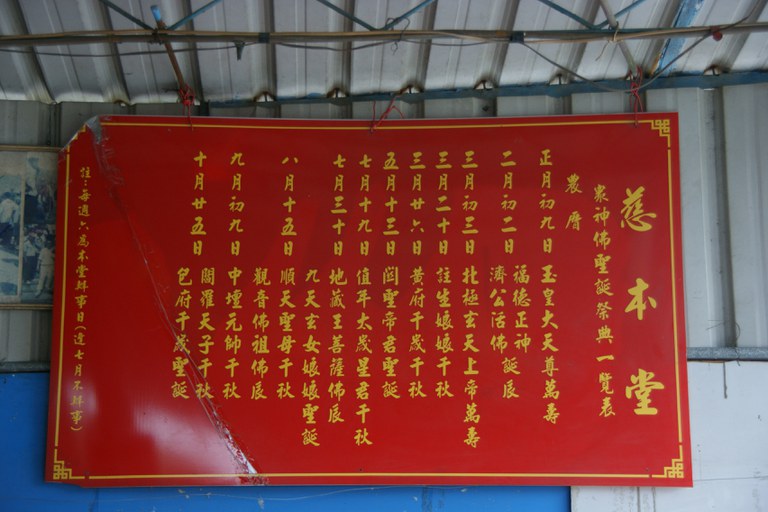 慈本堂
眾神佛聖誕祭典一覽表
農曆
正月初九日 玉皇大天尊萬壽
二月初二日 福德正神 濟公活佛 誕辰
三月初三日 北極玄天上帝萬壽
三月二十日 註生娘娘千秋
三月廿六日 黃府千歲千秋
五月十三日 関聖帝君聖誕
七月十九日 值年太歲星君千秋
七月三十日 地藏王菩薩佛辰
九天玄女娘娘聖誕
八月十五日 順天聖母千秋
觀音佛祖佛辰
九月初九日 中壇元帥千秋
閻羅天子千秋
十月廿五日 包府千歲聖誕
註：每週六為本堂辦事日(逢七月不辦事)